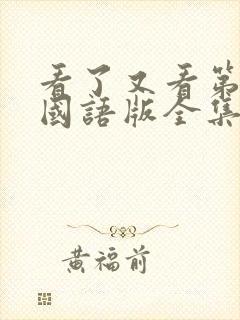 看了又看第
國語版全集
黃福前